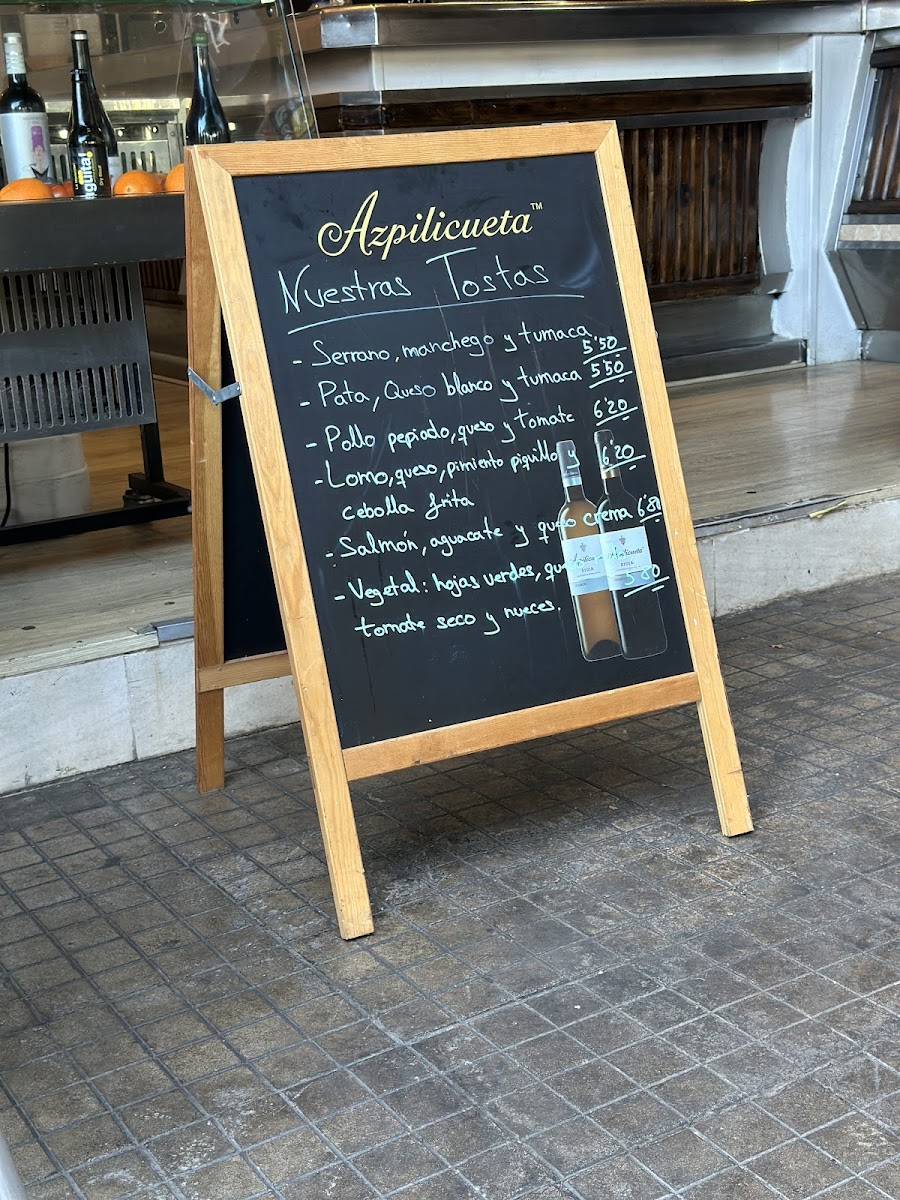 Azpilicueta™
Nuestras Tostas
- Serrano, manchego y tumaca 5'50
- Pata, Queso blanco y tumaca 5'50
- Pollo pepiado, queso y tomate 6'20
- Lomo, queso, pimiento piquillo y 6'20
cebolla frita
- Salmón, aguacate y queso crema 6'80
- Vegetal: hojas verdes, 5'80
tomate seco y nueces.
RIOJA
RIOJA